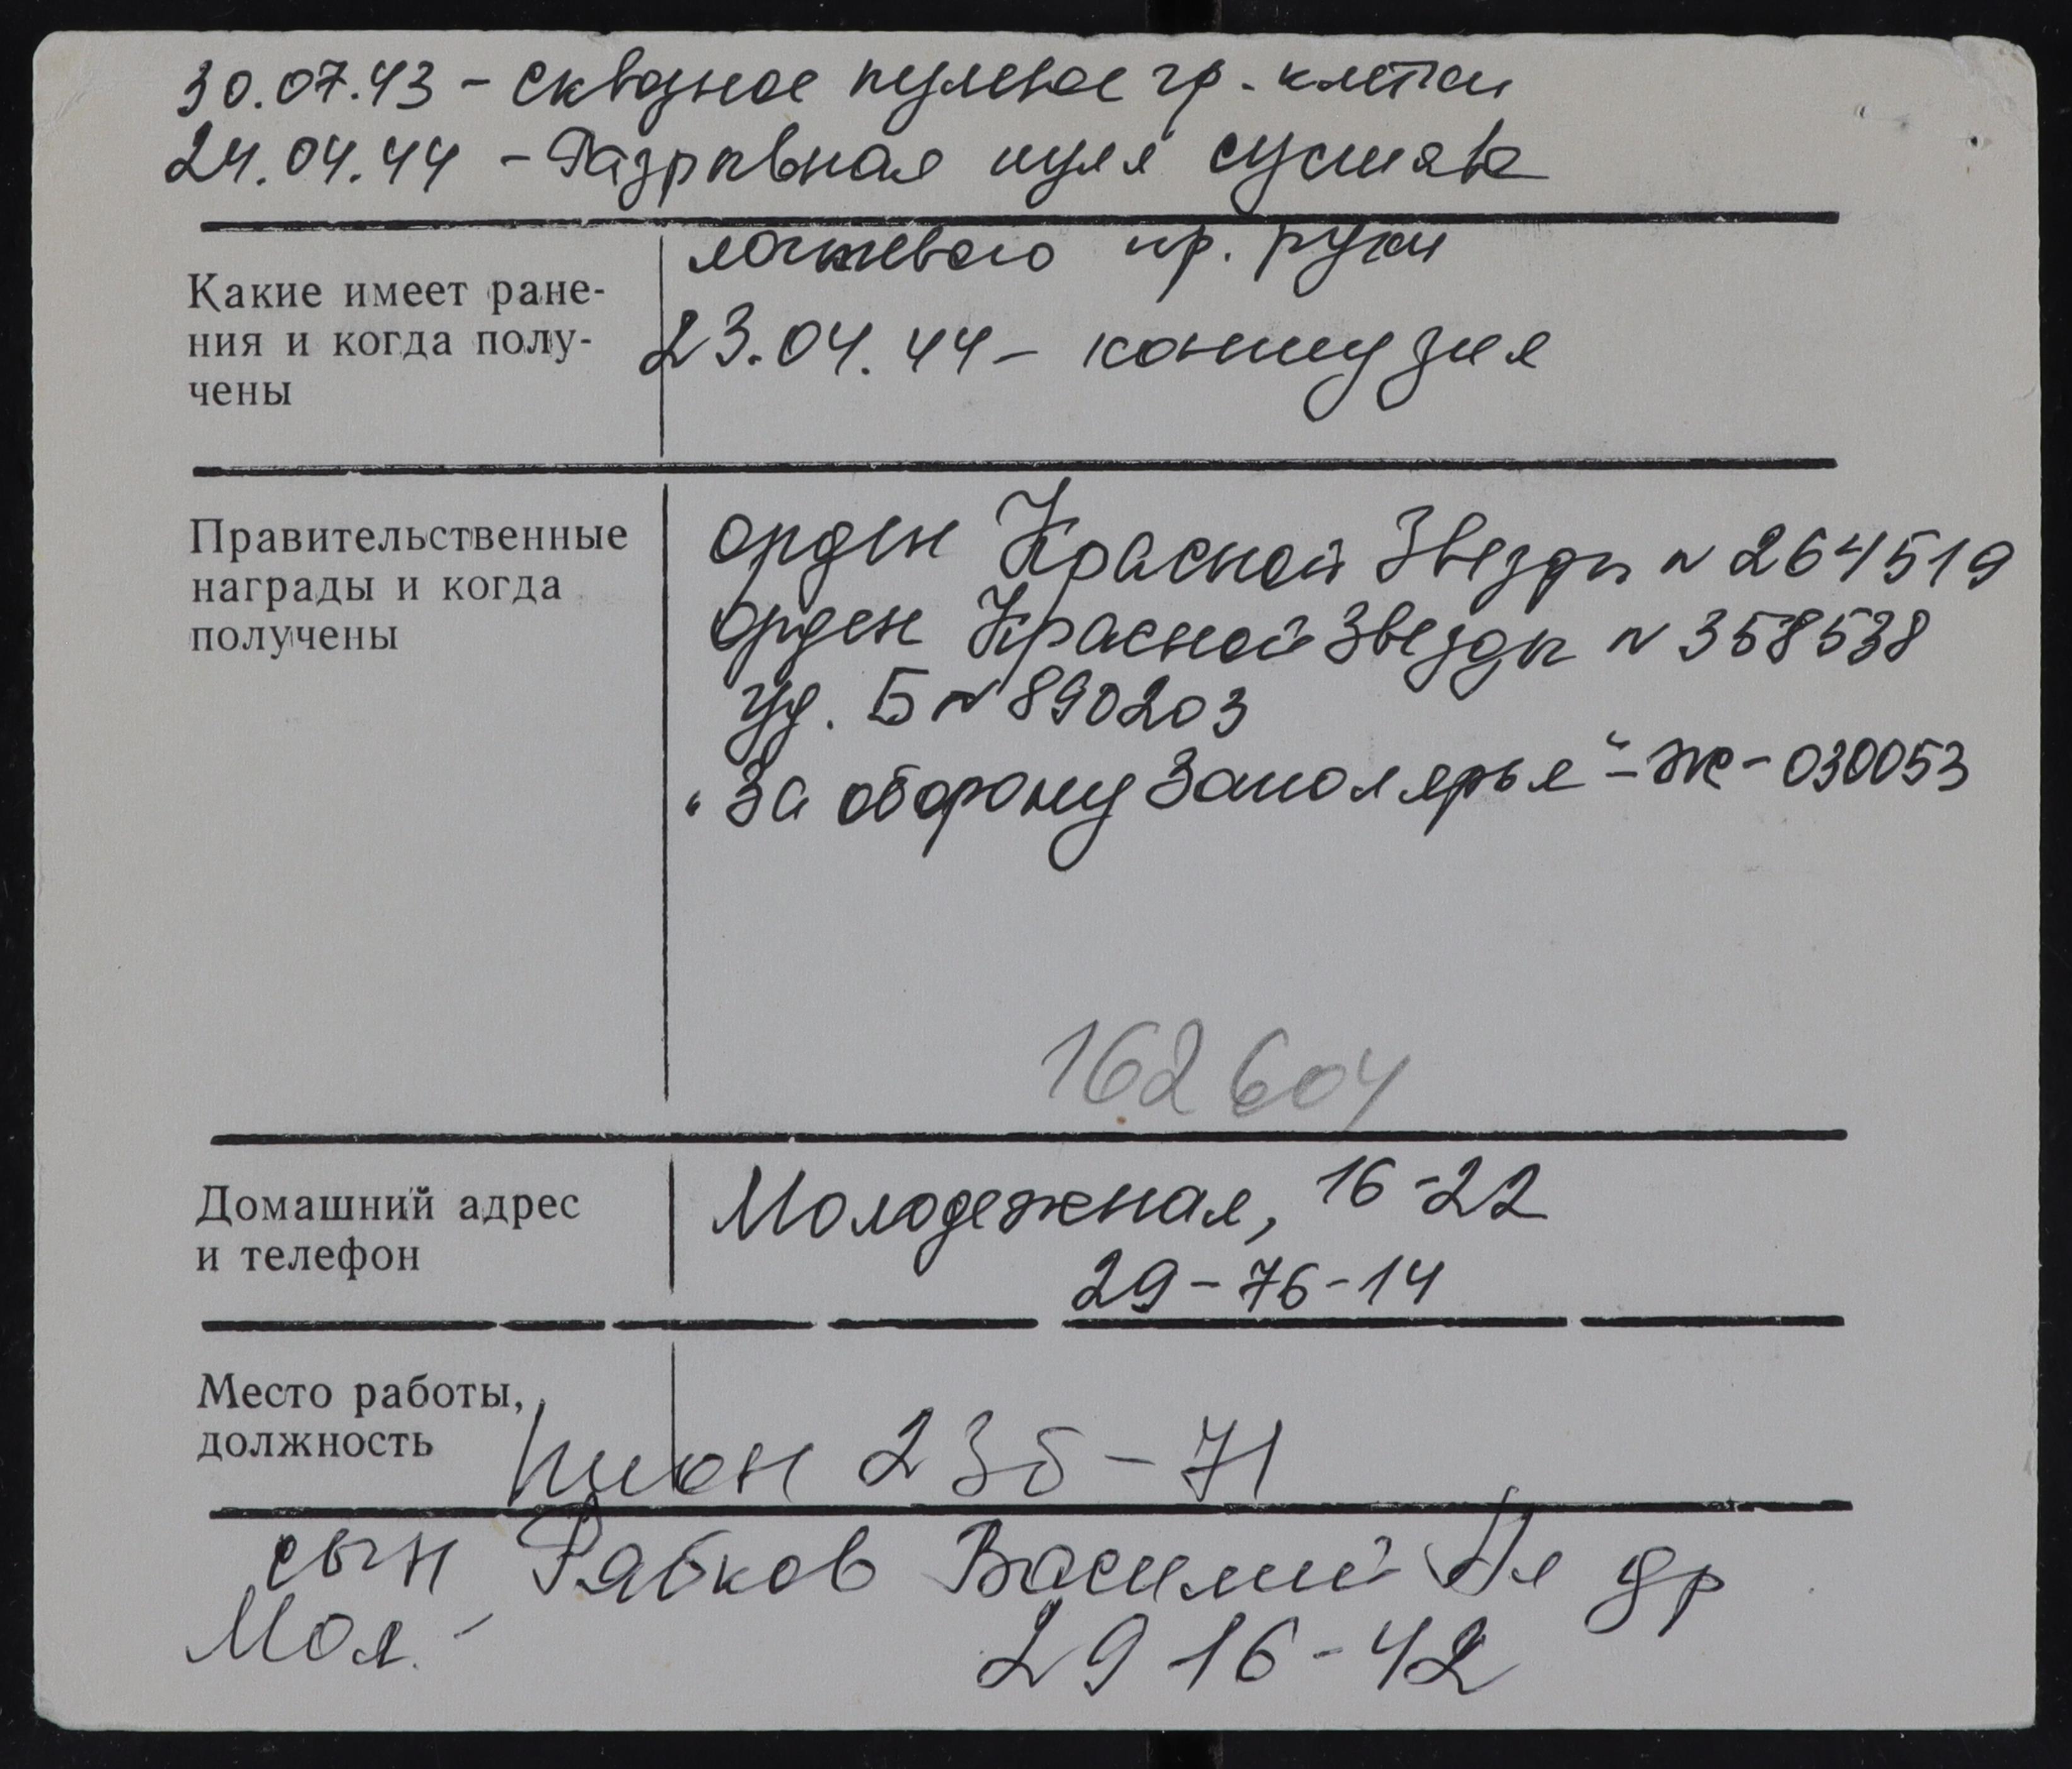 30.07.43 - сквозное пулевое гр. клетки
24.04.44 - Разрывная пуля сустава
локтевого пр. руки
Какие имеет ране-
ния и когда полу-
чены
23.04.44 - контузия
Правительственные
награды и когда
получены
орден Красной Звезды № 264519
орден Красной Звезды № 358538
уд. Б № 890203
"За оборону Заполярья" - Ж - 030053
162604
Домашний адрес
и телефон
Молодежная, 16-22
29-76-14
Место работы,
должность
235-71
сын Рябков Василий др
Мол. -
29 16-42